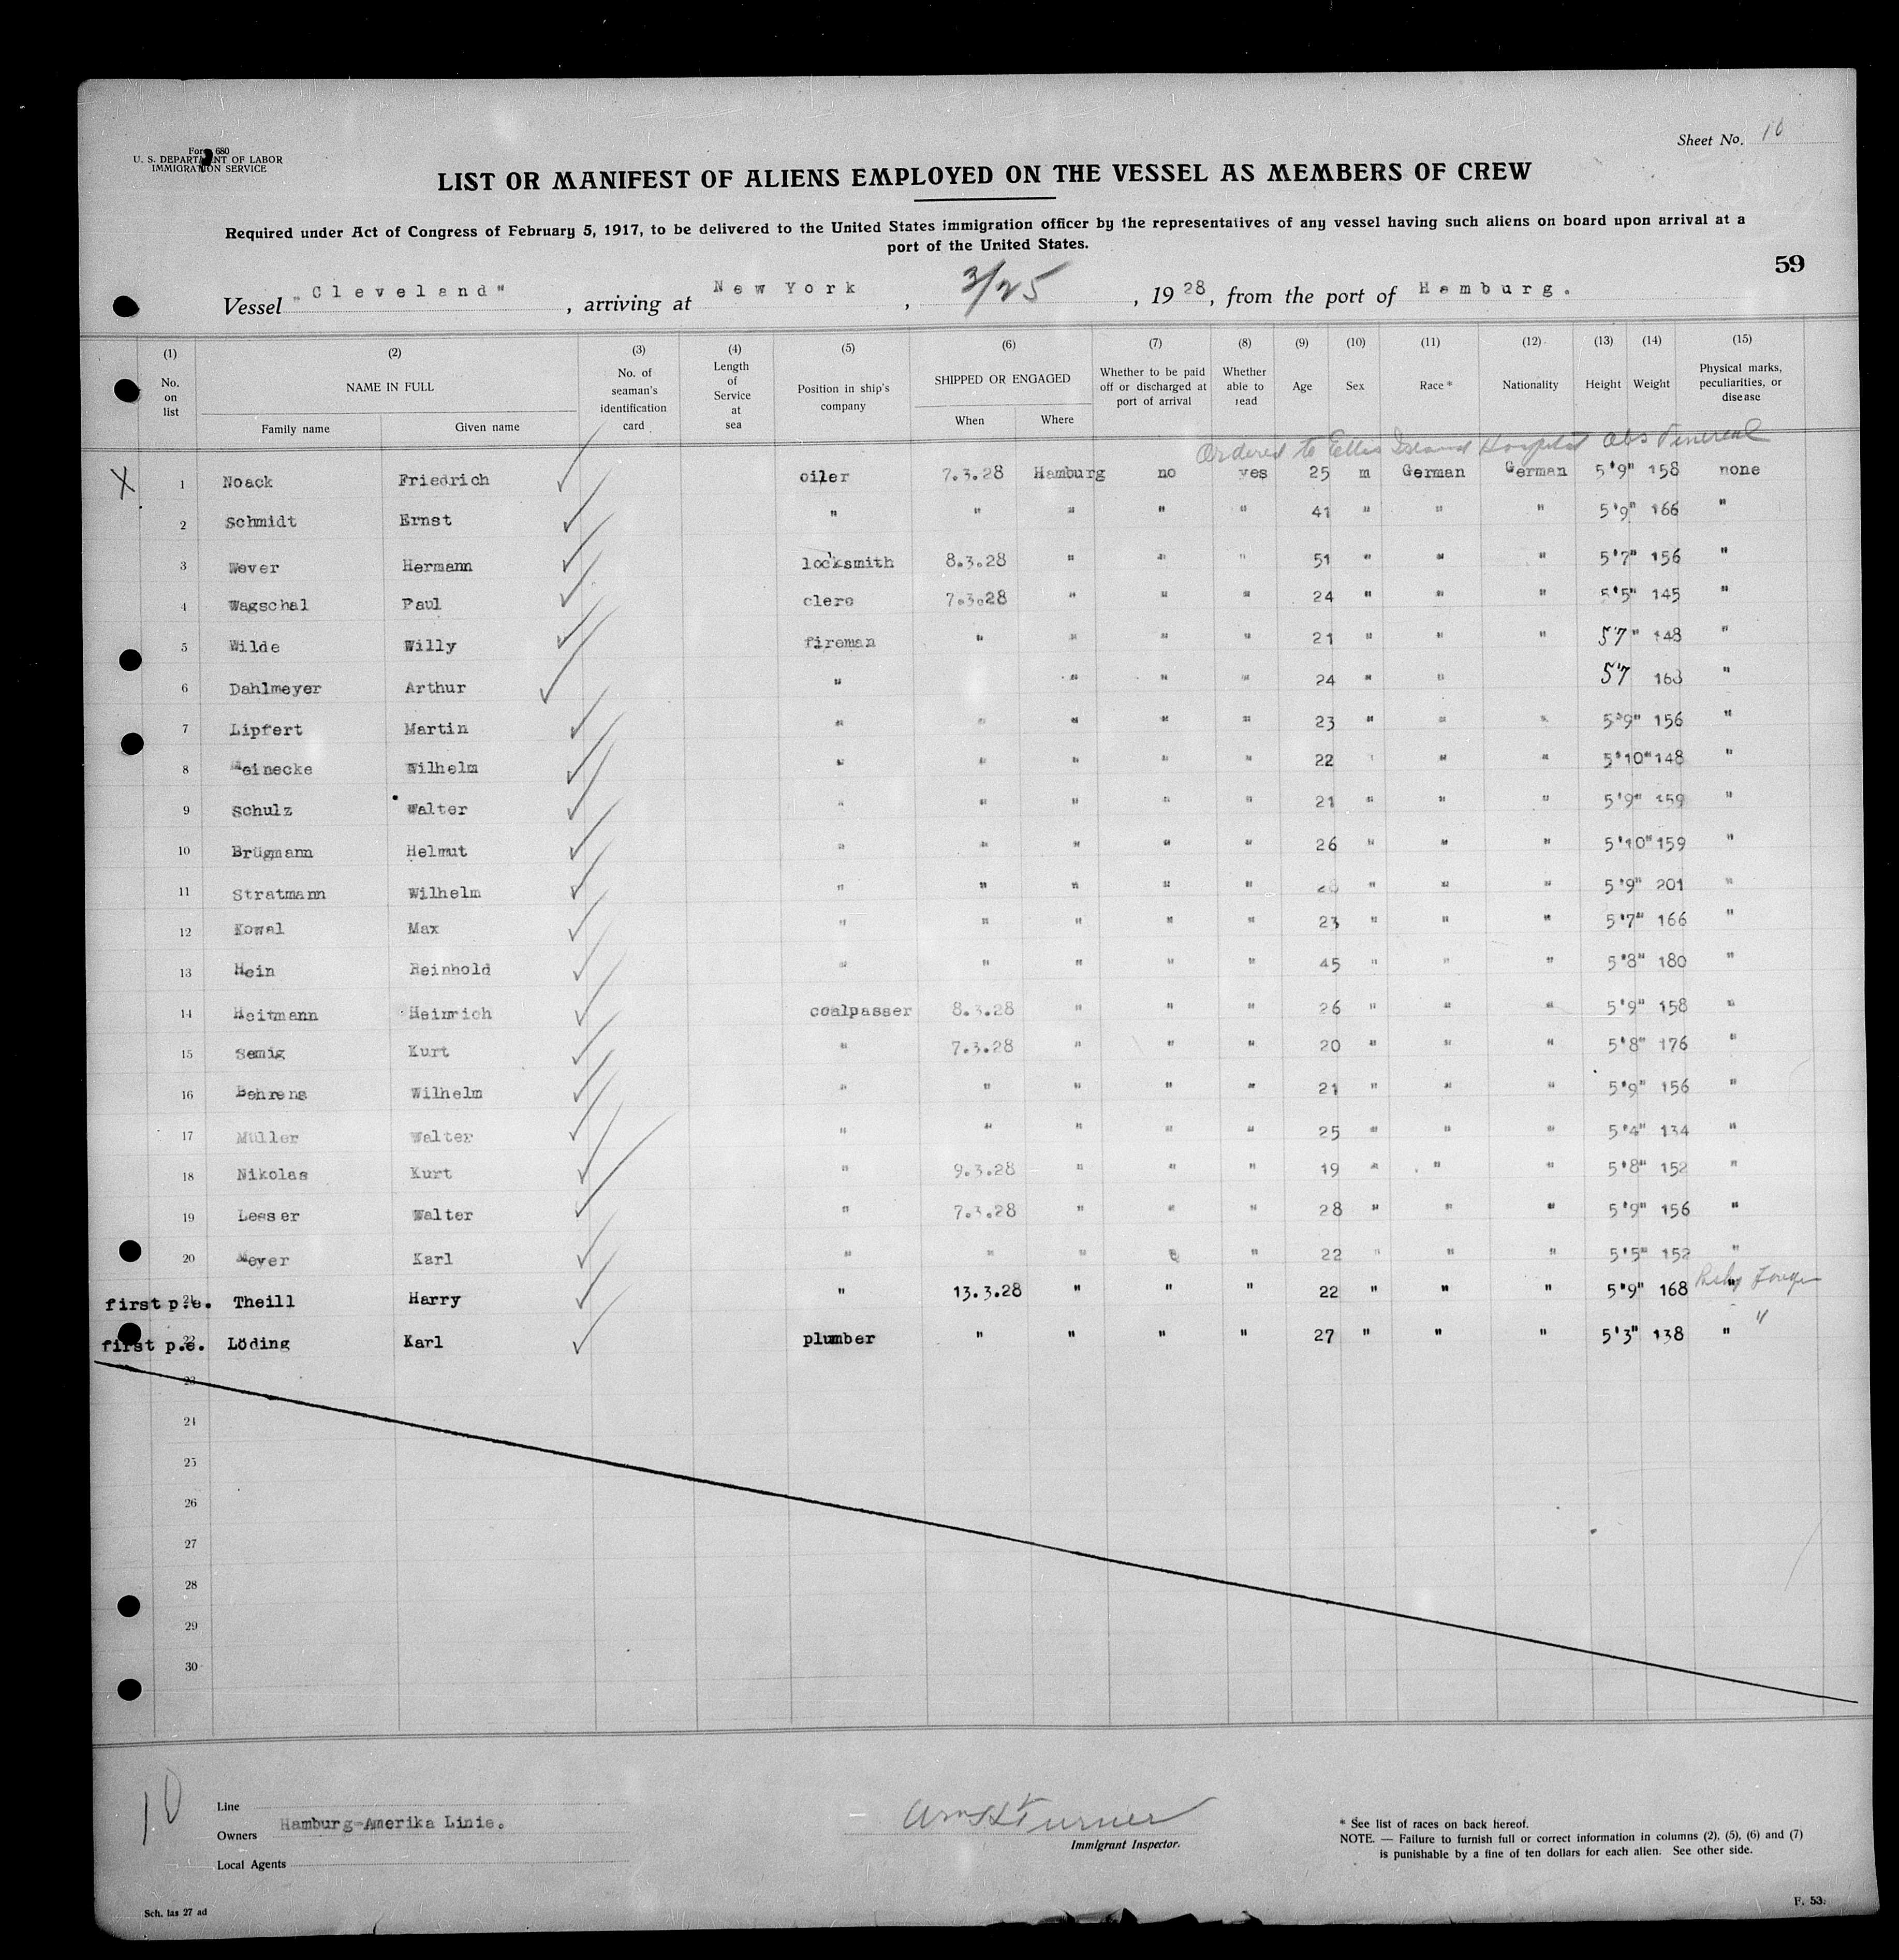 Sheet No. 10
Form 680
U. S. DEPARTMENT OF LABOR
IMMIGRATION SERVICE
LIST OR MANIFEST OF ALIENS EMPLOYED ON THE VESSEL AS MEMBERS OF CREW
Required under Act of Congress of February 5, 1917, to be delivered to the United States immigration officer by the representatives of any vessel having such aliens on board upon arrival at a
port of the United States.
59
Vessel "Cleveland", arriving at New York, 3/25, 1928, from the port of Hamburg.
(1) (2) (3) (4) (5) (6) (7) (8) (9) (10) (11) (12) (13) (14) (15)
No. on list NAME IN FULL Family name Given name No. of seaman's identification card Length of Service at sea Position in ship's company SHIPPED OR ENGAGED When Where Whether to be paid off or discharged at port of arrival Whether able to read Age Sex Race * Nationality Height Weight Physical marks, peculiarities, or disease
Ordered to Ellis Island Hospital obs Venereal
X 1 Noack Friedrich oiler 7.3.28 Hamburg no yes 25 m German German 5'9" 158 none
2 Schmidt Ernst " " " " " 41 " " " 5'9" 166 "
3 Wever Hermann locksmith 8.3.28 " " " 51 " " " 5'7" 156 "
4 Wagschal Paul clerc 7.3.28 " " " 24 " " " 5'5" 145 "
5 Wilde Willy fireman " " " " 21 " " " 5'7" 148 "
6 Dahlmeyer Arthur " " " " 24 " " 5'7 168 "
7 Lipfert Martin " " " " " 23 " " " 5'9" 156 "
8 Meinecke Wilhelm " " " " " 22 " " " 5'10" 148 "
9 Schulz Walter " " " " " 21 " " " 5'9" 159 "
10 Brügmann Helmut " " " " " 26 " " " 5'10" 159 "
11 Stratmann Wilhelm " " " " " " " " 5'9" 201 "
12 Kowal Max " " " " " 23 " " " 5'7" 166 "
13 Hein Reinhold " " " " " 45 " " " 5'8" 180 "
14 Heitmann Heinrich coalpasser 8.3.28 " " " 26 " " " 5'9" 158 "
15 Semig Kurt " 7.3.28 " " " 20 " " " 5'8" 176 "
16 Behrens Wilhelm " " " " " 21 " " " 5'9" 156 "
17 Müller Walter " " " " " 25 " " " 5'4" 134 "
18 Nikolas Kurt " 9.3.28 " " " 19 " " " 5'8" 152 "
19 Lesser Walter " 7.3.28 " " " 28 " " " 5'9" 156 "
20 Meyer Karl " " " " " 22 " " " 5'5" 152 "
first p.e. 21 Theill Harry " 13.3.28 " " " 22 " " " 5'9" 168 "
first p.e. 22 Löding Karl plumber " " " " 27 " " " 5'3" 138 " "
23
24
25
26
27
28
29
30
10
Line
Owners Hamburg-Amerika Linie.
Local Agents
Wm H Turner
Immigrant Inspector.
* See list of races on back hereof.
NOTE. — Failure to furnish full or correct information in columns (2), (5), (6) and (7)
is punishable by a fine of ten dollars for each alien. See other side.
Sch. las 27 ad
F. 53.